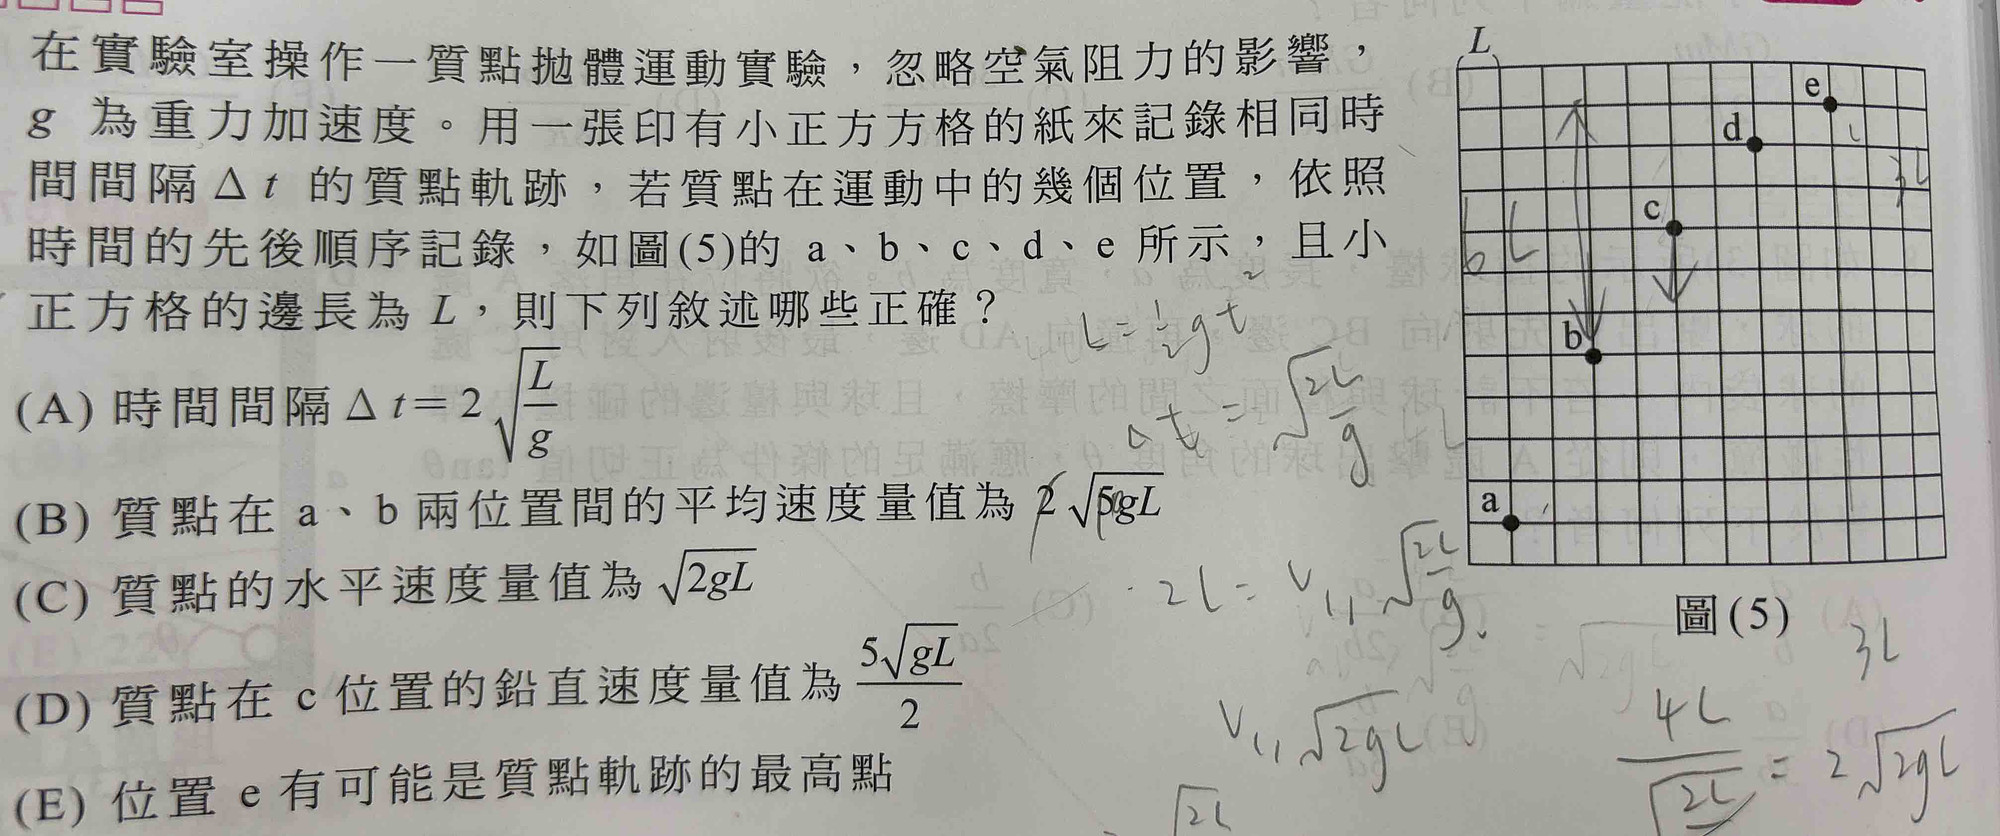 在實驗室操作一質點拋體運動實驗，忽略空氣阻力的影響，
g 為重力加速度。用一張印有小正方方格的紙來記錄相同時
間間隔 Δt 的質點軌跡，若質點在運動中的幾個位置，依照
時間的先後順序記錄，如圖(5)的 a、b、c、d、e 所示，且小
正方格的邊長為 L，則下列敘述哪些正確？
(A) 時間間隔 Δt＝2√(L/g)
(B) 質點在 a、b 兩位置間的平均速度量值為 2√(5gL)
(C) 質點的水平速度量值為 √(2gL)
(D) 質點在 c 位置的鉛直速度量值為 5√(gL)/2
(E) 位置 e 有可能是質點軌跡的最高點
L
e
d
c
b
a
圖(5)
6L
L
3L
L=½gt²
Δt=√(2L/g)
2L=V₁₁√(2L/g)
V₁₁√(2gL)
3L
4L/√(2L) = 2√(2gL)
√(2L)